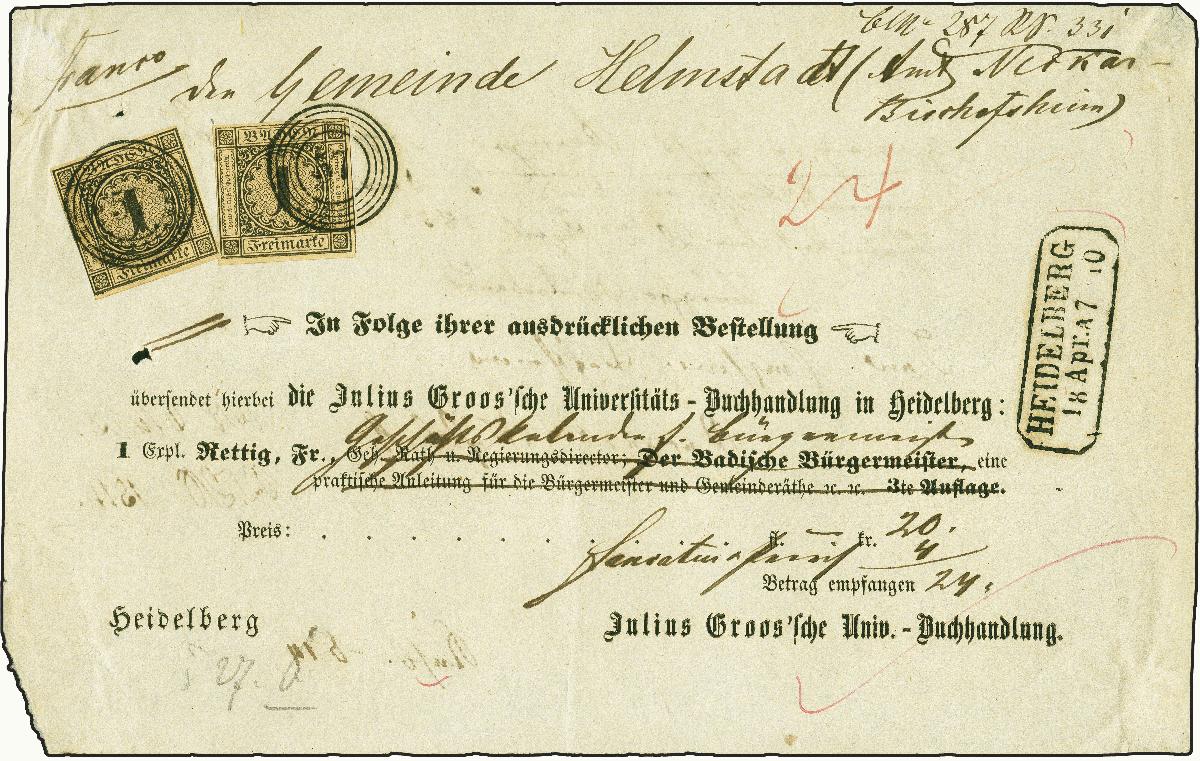 287 33i
franco
den Gemeinde Helmstadt (Amt Neckar-
Bischofsheim)
BADEN
1
Freimarke
BADEN
1
57
Freimarke
24
HEIDELBERG
18 Apr. A7 10
In Folge ihrer ausdrücklichen Bestellung
übersendet hierbei die Julius Groos'sche Universitäts-Buchhandlung in Heidelberg:
Geschäftskalender f. Bürgermeister
1 Expl. Rettig, Fr., Geh. Rath u. Regierungsdirector; Der Badische Bürgermeister, eine
praktische Anleitung für die Bürgermeister und Gemeinderäthe ꝛc. ꝛc. 3te Auflage.
Preis: . . . . . . . fl. — kr. 20.
4
Betrag empfangen 24.
Heidelberg
Julius Groos'sche Univ.-Buchhandlung.
27.